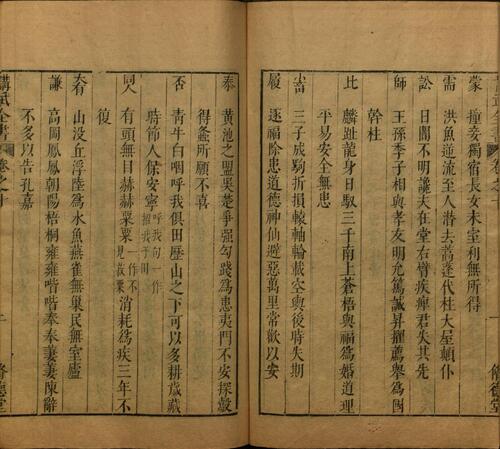 蒙 撞妾獨宿長女未室利無所得
需 洪魚逆流至人潛去蒿蓬代柱大屋顛仆
訟 日闇不明讒夫在堂右臂疾痺君失其先
師 王孫季子相與孝友明允篤誠昇擢薦舉爲國
幹柱
比 麟趾龍身日馭三千南上蒼梧與福爲婚道理
平易安全無患
小畜 三子成駒折損轅軸輪載空輿後時失期
履 逐福除患道德神仙避惡萬里常歡以安
泰 黃池之盟吳楚爭强勾踐爲患夷門不安探鷇
得蠡所願不喜
否 青牛白咽呼我俱田歷山之下可以多耕歲藏
時節人保安寧 呼我句一作招我于田
同人 有頭無目赫赫粟粟 一作不見菽粟 消耗爲疾三年不
復
大有 山没丘浮陸爲水魚燕雀無巢民無室廬
謙 高岡鳳凰朝陽梧桐雍雍喈喈菶菶萋萋陳辭
不多以告孔嘉
講武全書 卷之十 修德堂